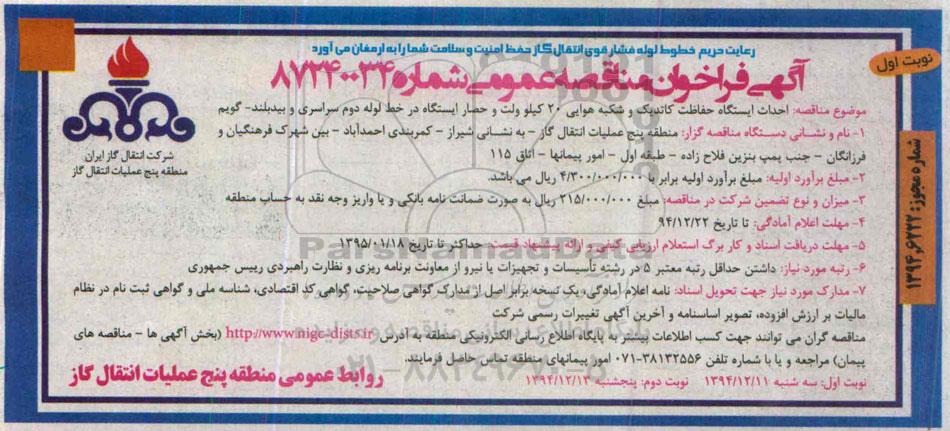 رعایت حریم خطوط لوله فشار قوی انتقال گاز حفظ امنیت و سلامت شما را به ارمغان می آورد
نوبت اول
آگهی فراخوان مناقصه عمومی شماره ۸۷۲۴۰۰۳۴
شرکت انتقال گاز ایران
منطقه پنج عملیات انتقال گاز
شماره مجوز: ۱۳۹۴٫۶۲۲۲
موضوع مناقصه: احداث ایستگاه حفاظت کاتدیک و شبکه هوایی ۲۰ کیلو ولت و حصار ایستگاه در خط لوله دوم سراسری و بیدبلند- گویم
۱- نام و نشانی دستگاه مناقصه گزار: منطقه پنج عملیات انتقال گاز - به نشانی شیراز - کمربندی احمدآباد - بین شهرک فرهنگیان و
فرزانگان - جنب پمپ بنزین فلاح زاده - طبقه اول - امور پیمانها - اتاق ۱۱۵
۲- مبلغ برآورد اولیه: مبلغ برآورد اولیه برابر با ۴/۳۰۰/۰۰۰/۰۰۰ ریال می باشد.
۳- میزان و نوع تضمین شرکت در مناقصه: مبلغ ۲۱۵/۰۰۰/۰۰۰ ریال به صورت ضمانت نامه بانکی و یا واریز وجه نقد به حساب منطقه
۴- مهلت اعلام آمادگی: تا تاریخ ۹۴/۱۲/۲۲
۵- مهلت دریافت اسناد و کار برگ استعلام ارزیابی کیفی و ارائه پیشنهاد قیمت: حداکثر تا تاریخ ۱۳۹۵/۰۱/۱۸
۶- رتبه مورد نیاز: داشتن حداقل رتبه معتبر ۵ در رشته تأسیسات و تجهیزات یا نیرو از معاونت برنامه ریزی و نظارت راهبردی رییس جمهوری
۷- مدارک مورد نیاز جهت تحویل اسناد: نامه اعلام آمادگی، یک نسخه برابر اصل از مدارک گواهی صلاحیت، گواهی کد اقتصادی، شناسه ملی و گواهی ثبت نام در نظام
مالیات بر ارزش افزوده، تصویر اساسنامه و آخرین آگهی تغییرات رسمی شرکت
مناقصه گران می توانند جهت کسب اطلاعات بیشتر به پایگاه اطلاع رسانی الکترونیکی منطقه به آدرس http://www.nigc-dist5.ir (بخش آگهی ها - مناقصه های
پیمان) مراجعه و یا با شماره تلفن ۳۸۱۳۲۵۵۶-۰۷۱ امور پیمانهای منطقه تماس حاصل فرمایند.
نوبت اول: سه شنبه ۱۳۹۴/۱۲/۱۱ نوبت دوم: پنجشنبه ۱۳۹۴/۱۲/۱۳
روابط عمومی منطقه پنج عملیات انتقال گاز
ParsNamadData
۰۲۱-۸۸۳۴۹۶۷۰-۵